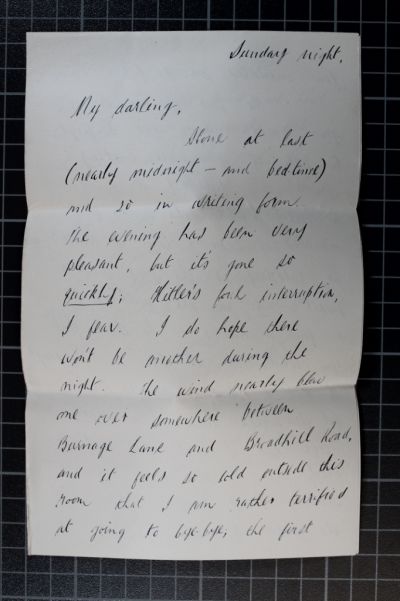 Sunday night.
My darling,
Alone at last
(nearly midnight – and bedtime)
and so in writing form.
The evening has been very
pleasant, but it's gone so
quickly; Hitler's interruption,
I fear. I do hope there
won't be another during the
night. The wind nearly blew
me over somewhere between
Burnage Lane and Broadhill Road,
and it feels so cold outside this
room that I am rather terrified
at going to bye-bye; the first